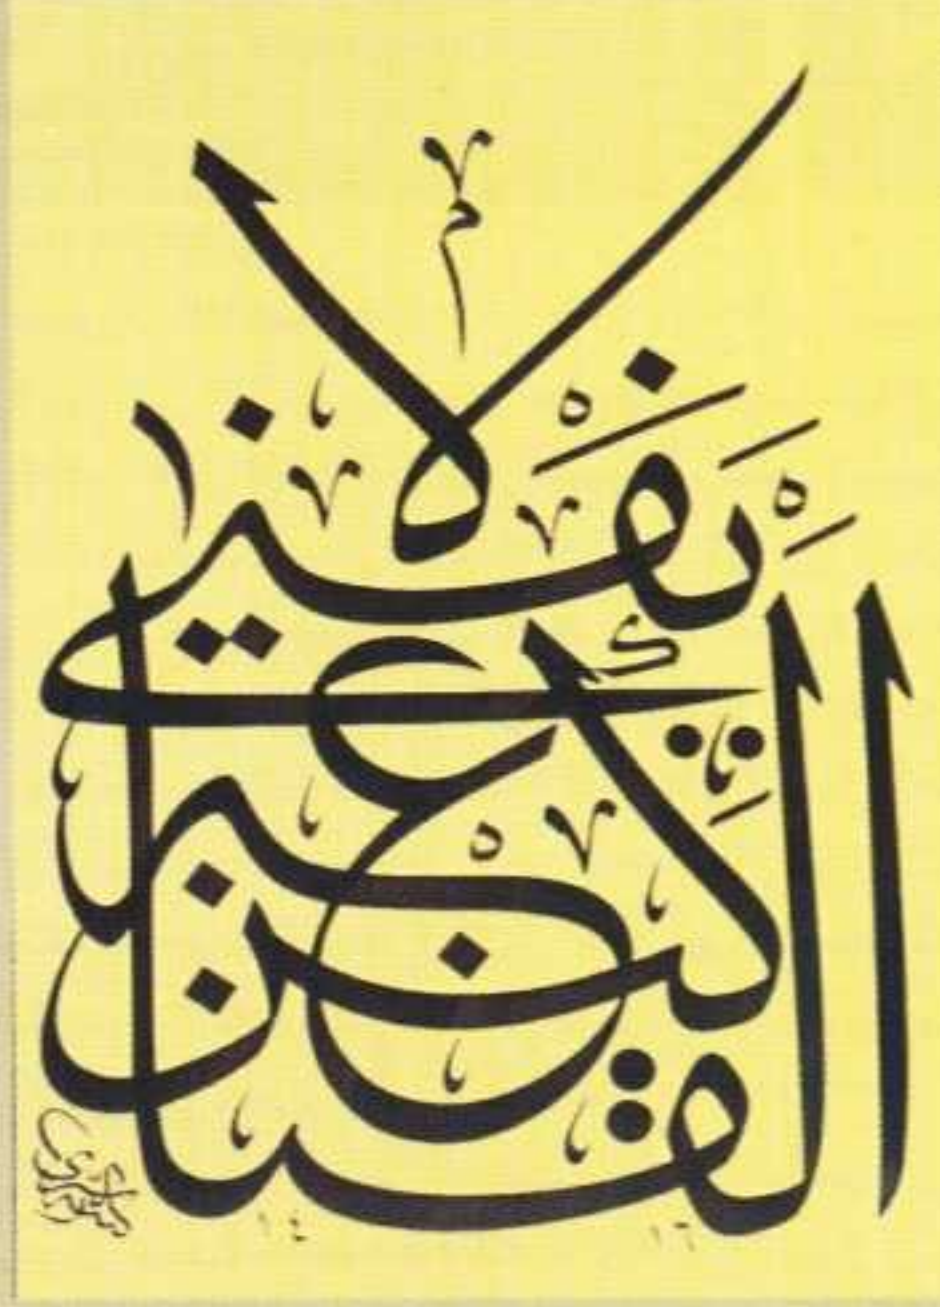 القناعة كنز لا يفنى
١٤١٦